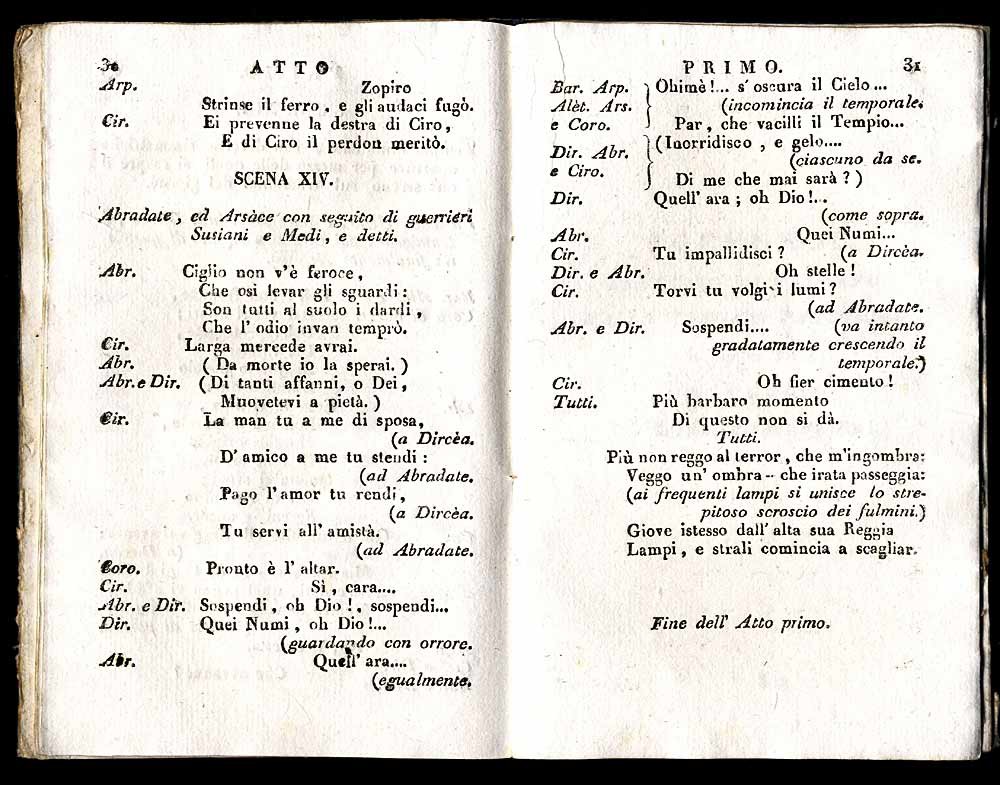 30 ATTO
Arp. Zopiro
Strinse il ferro, e gli audaci fugò.
Cir. Ei prevenne la destra di Ciro,
E di Ciro il perdon meritò.
SCENA XIV.
Abradate, ed Arsàce con seguito di guerrieri
Susiani e Medi, e detti.
Abr. Ciglio non v'è feroce,
Che osi levar gli sguardi:
Son tutti al suolo i dardi,
Che l'odio invan temprò.
Cir. Larga mercede avrai.
Abr. (Da morte io la sperai.)
Abr. e Dir. (Di tanti affanni, o Dei,
Muovetevi a pietà.)
Cir. La man tu a me di sposa,
(a Dircèa.
D'amico a me tu stendi:
(ad Abradate.
Pago l'amor tu rendi,
(a Dircèa.
Tu servi all'amistà.
(ad Abradate.
Coro. Pronto è l'altar.
Cir. Sì, cara....
Abr. e Dir. Sospendi, oh Dio!, sospendi...
Dir. Quei Numi, oh Dio!...
(guardando con orrore.
Abr. Quell' ara....
(egualmente.
PRIMO. 31
Bar. Arp. Ohimè!... s'oscura il Cielo...
Alèt. Ars. (incomincia il temporale.
e Coro. Par, che vacilli il Tempio...
Dir. Abr. (Inorridisco, e gelo....
(ciascuno da se.
e Ciro. Di me che mai sarà?)
Dir. Quell' ara; oh Dio!...
(come sopra.
Abr. Quei Numi...
Cir. Tu impallidisci? (a Dircèa.
Dir. e Abr. Oh stelle!
Cir. Torvi tu volgi i lumi?
(ad Abradate.
Abr. e Dir. Sospendi.... (va intanto
gradatamente crescendo il
temporale.)
Cir. Oh fier cimento!
Tutti. Più barbaro momento
Di questo non si dà.
Tutti.
Più non reggo al terror, che m'ingombra:
Veggo un' ombra -- che irata passeggia:
(ai frequenti lampi si unisce lo stre-
pitoso scroscio dei fulmini.)
Giove istesso dall' alta sua Reggia
Lampi, e strali comincia a scagliar.
Fine dell' Atto primo.